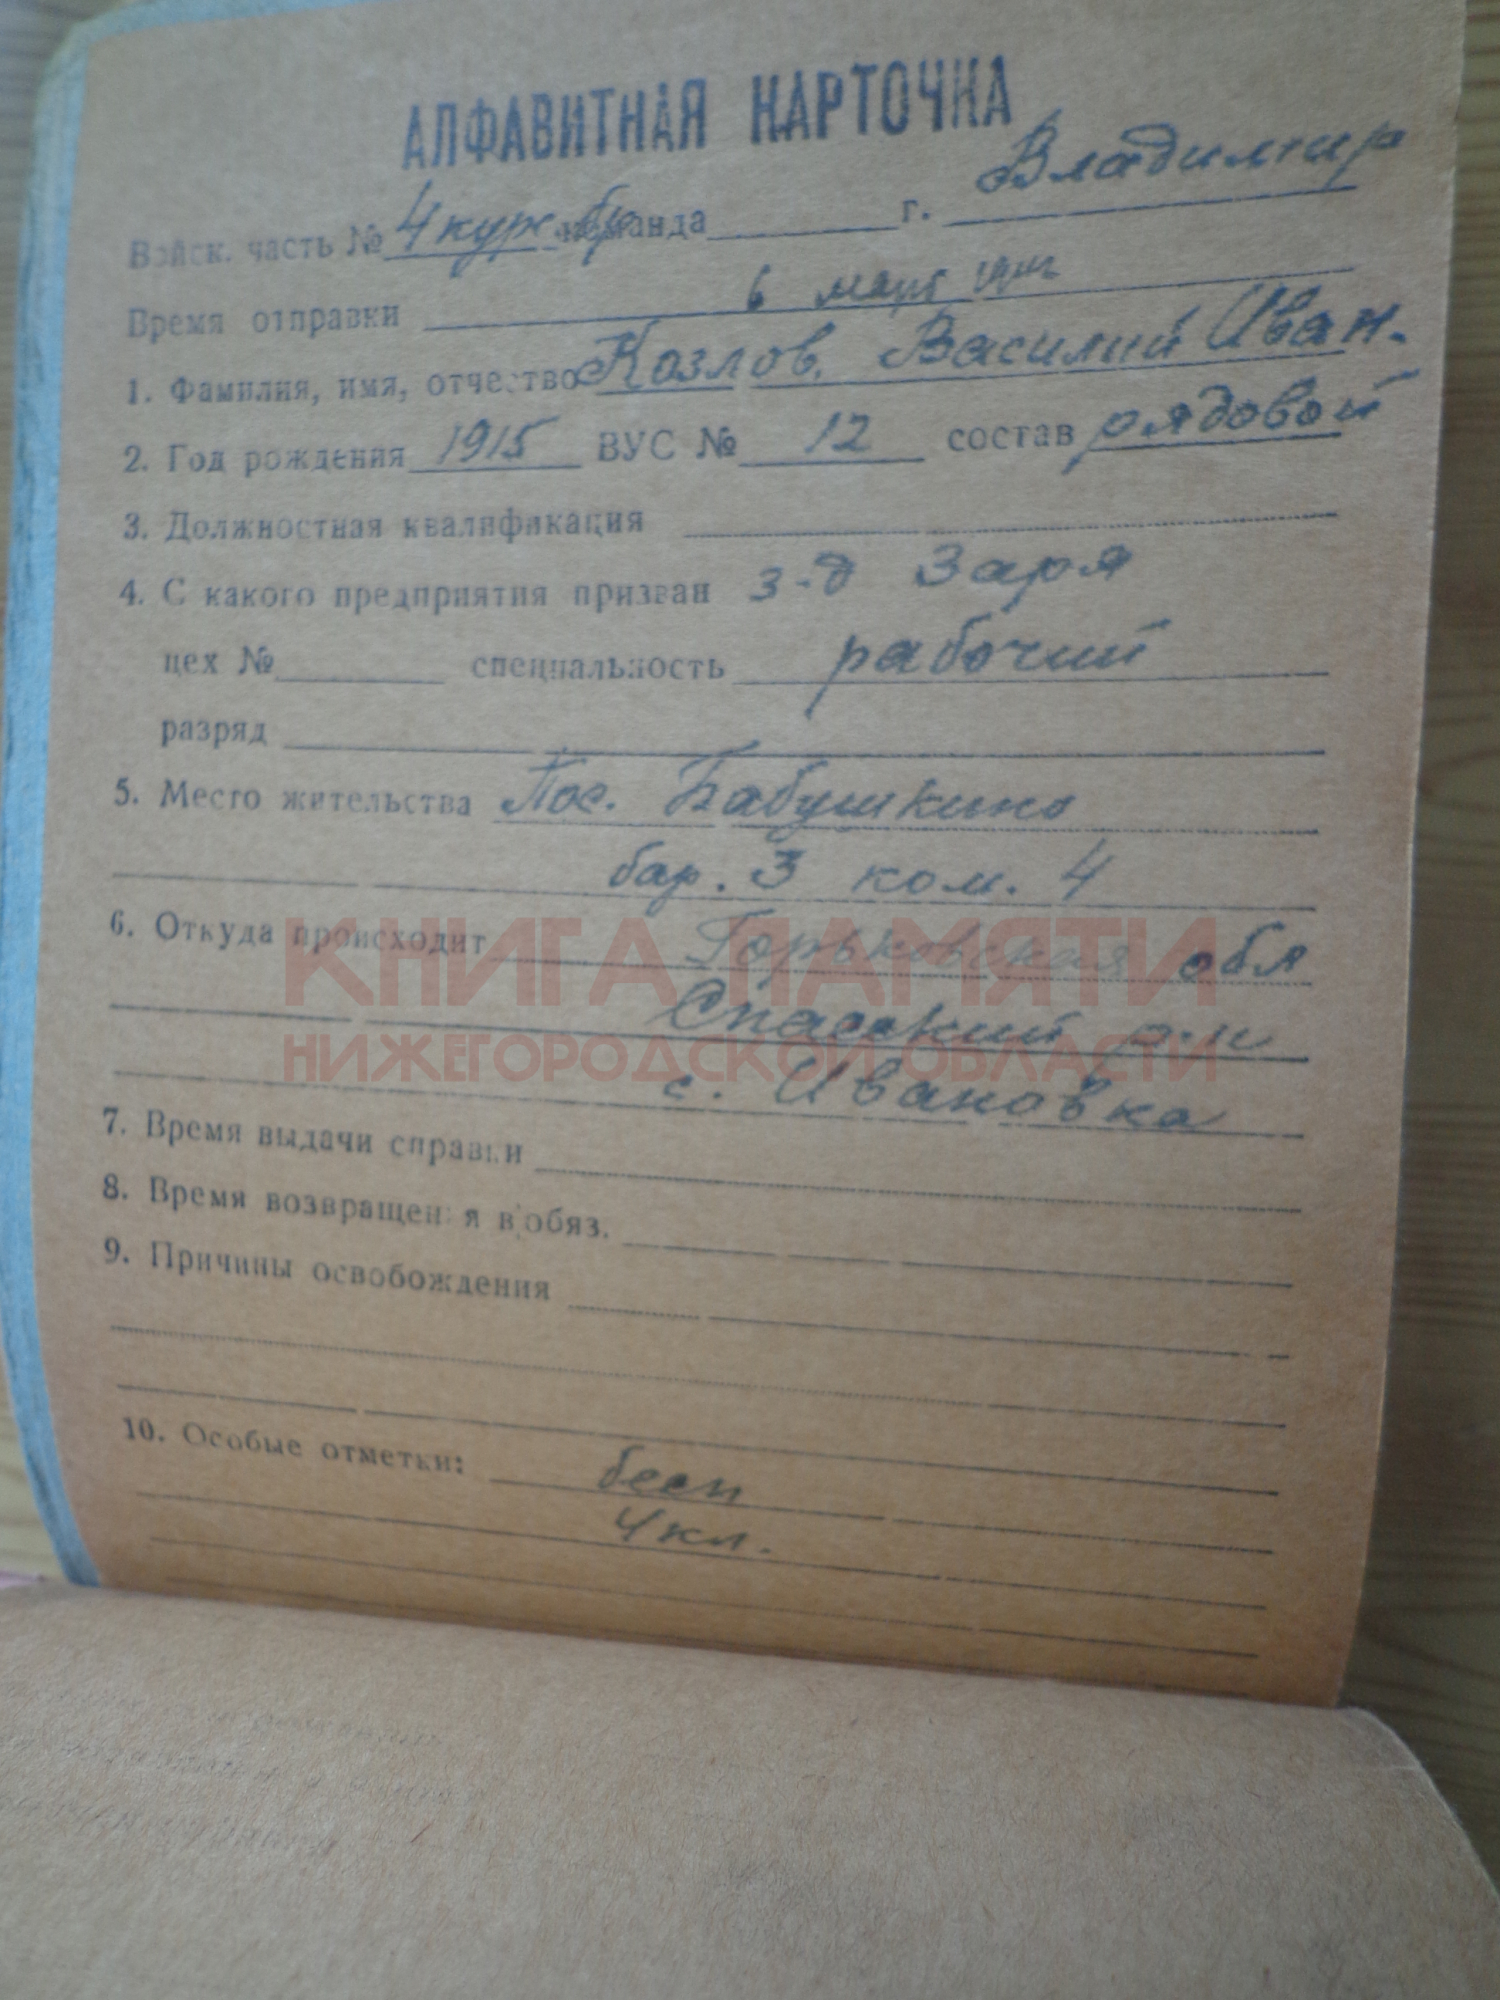 АЛФАВИТНАЯ КАРТОЧКА
Войск. часть № 4 курс. бр команда г. Владимир
Время отправки 6 март
1. Фамилия, имя, отчество Козлов Василий Иван.
2. Год рождения 1915 ВУС № 12 состав рядовой
3. Должностная квалификация
4. С какого предприятия призван з-д Заря
цех № специальность рабочий
разряд
5. Место жительства Пос. Бабушкино
бар. 3 ком. 4
6. Откуда происходит Горьковская обл
КНИГА ПАМЯТИ
Спасский р-н
НИЖЕГОРОДСКОЙ ОБЛАСТИ
с. Ивановка
7. Время выдачи справки
8. Время возвращения в обяз.
9. Причины освобождения
10. Особые отметки: бесп
4 кл.